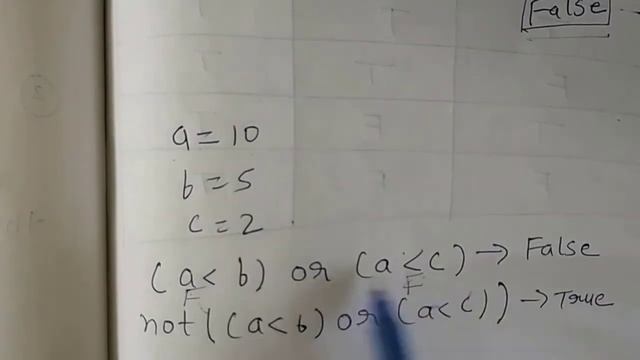 False
a = 10
b = 5
c = 2
(a < b) or (a < c) → False
F F
not((a < b) or (a < c)) → True